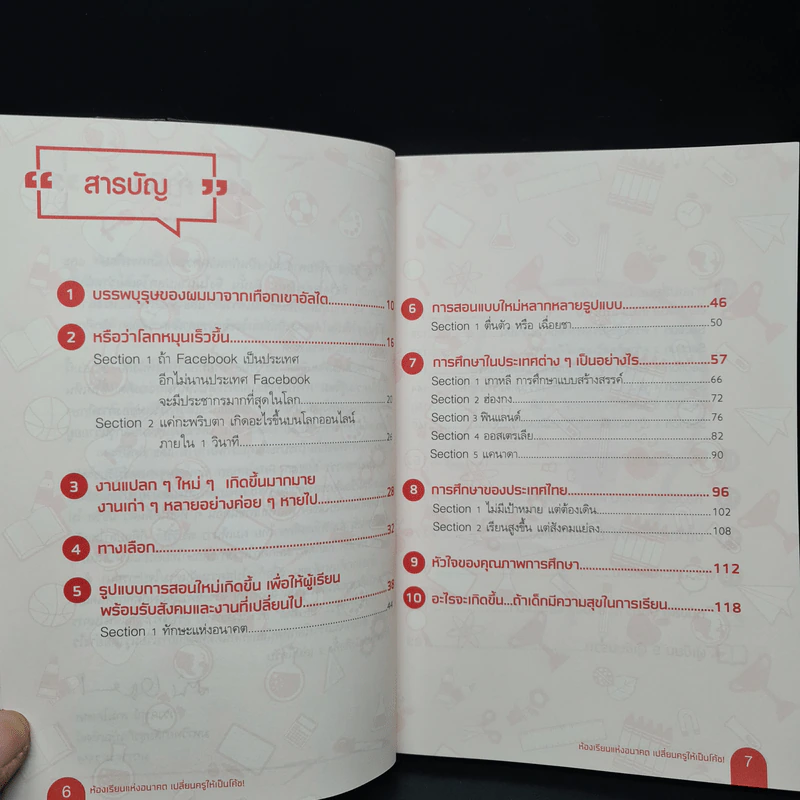 สารบัญ
1 บรรพบุรุษของผมมาจากเทือกเขาอัลไต 10
2 หรือว่าโลกหมุนเร็วขึ้น 16
Section 1 ถ้า Facebook เป็นประเทศ
อีกไม่นานประเทศ Facebook
จะมีประชากรมากที่สุดในโลก 20
Section 2 แค่กะพริบตา เกิดอะไรขึ้นบนโลกออนไลน์
ภายใน 1 วินาที 26
3 งานแปลก ๆ ใหม่ ๆ เกิดขึ้นมากมาย
งานเก่า ๆ หลายอย่างค่อย ๆ หายไป 28
4 ทางเลือก 32
5 รูปแบบการสอนใหม่เกิดขึ้น เพื่อให้ผู้เรียน
พร้อมรับสังคมและงานที่เปลี่ยนไป 36
Section 1 ทักษะแห่งอนาคต 44
6 ห้องเรียนแห่งอนาคต เปลี่ยนครูให้เป็นโค้ช!
6 การสอนแบบใหม่หลากหลายรูปแบบ 46
Section 1 ตื่นตัว หรือ เฉื่อยชา 50
7 การศึกษาในประเทศต่าง ๆ เป็นอย่างไร 57
Section 1 เกาหลี การศึกษาแบบสร้างสรรค์ 66
Section 2 ฮ่องกง 72
Section 3 ฟินแลนด์ 76
Section 4 ออสเตรเลีย 82
Section 5 แคนาดา 90
8 การศึกษาของประเทศไทย 96
Section 1 ไม่มีเป้าหมาย แต่ต้องเดิน 102
Section 2 เรียนสูงขึ้น แต่สังคมแย่ลง 108
9 หัวใจของคุณภาพการศึกษา 112
10 อะไรจะเกิดขึ้น...ถ้าเด็กมีความสุขในการเรียน 118
ห้องเรียนแห่งอนาคต เปลี่ยนครูให้เป็นโค้ช! 7